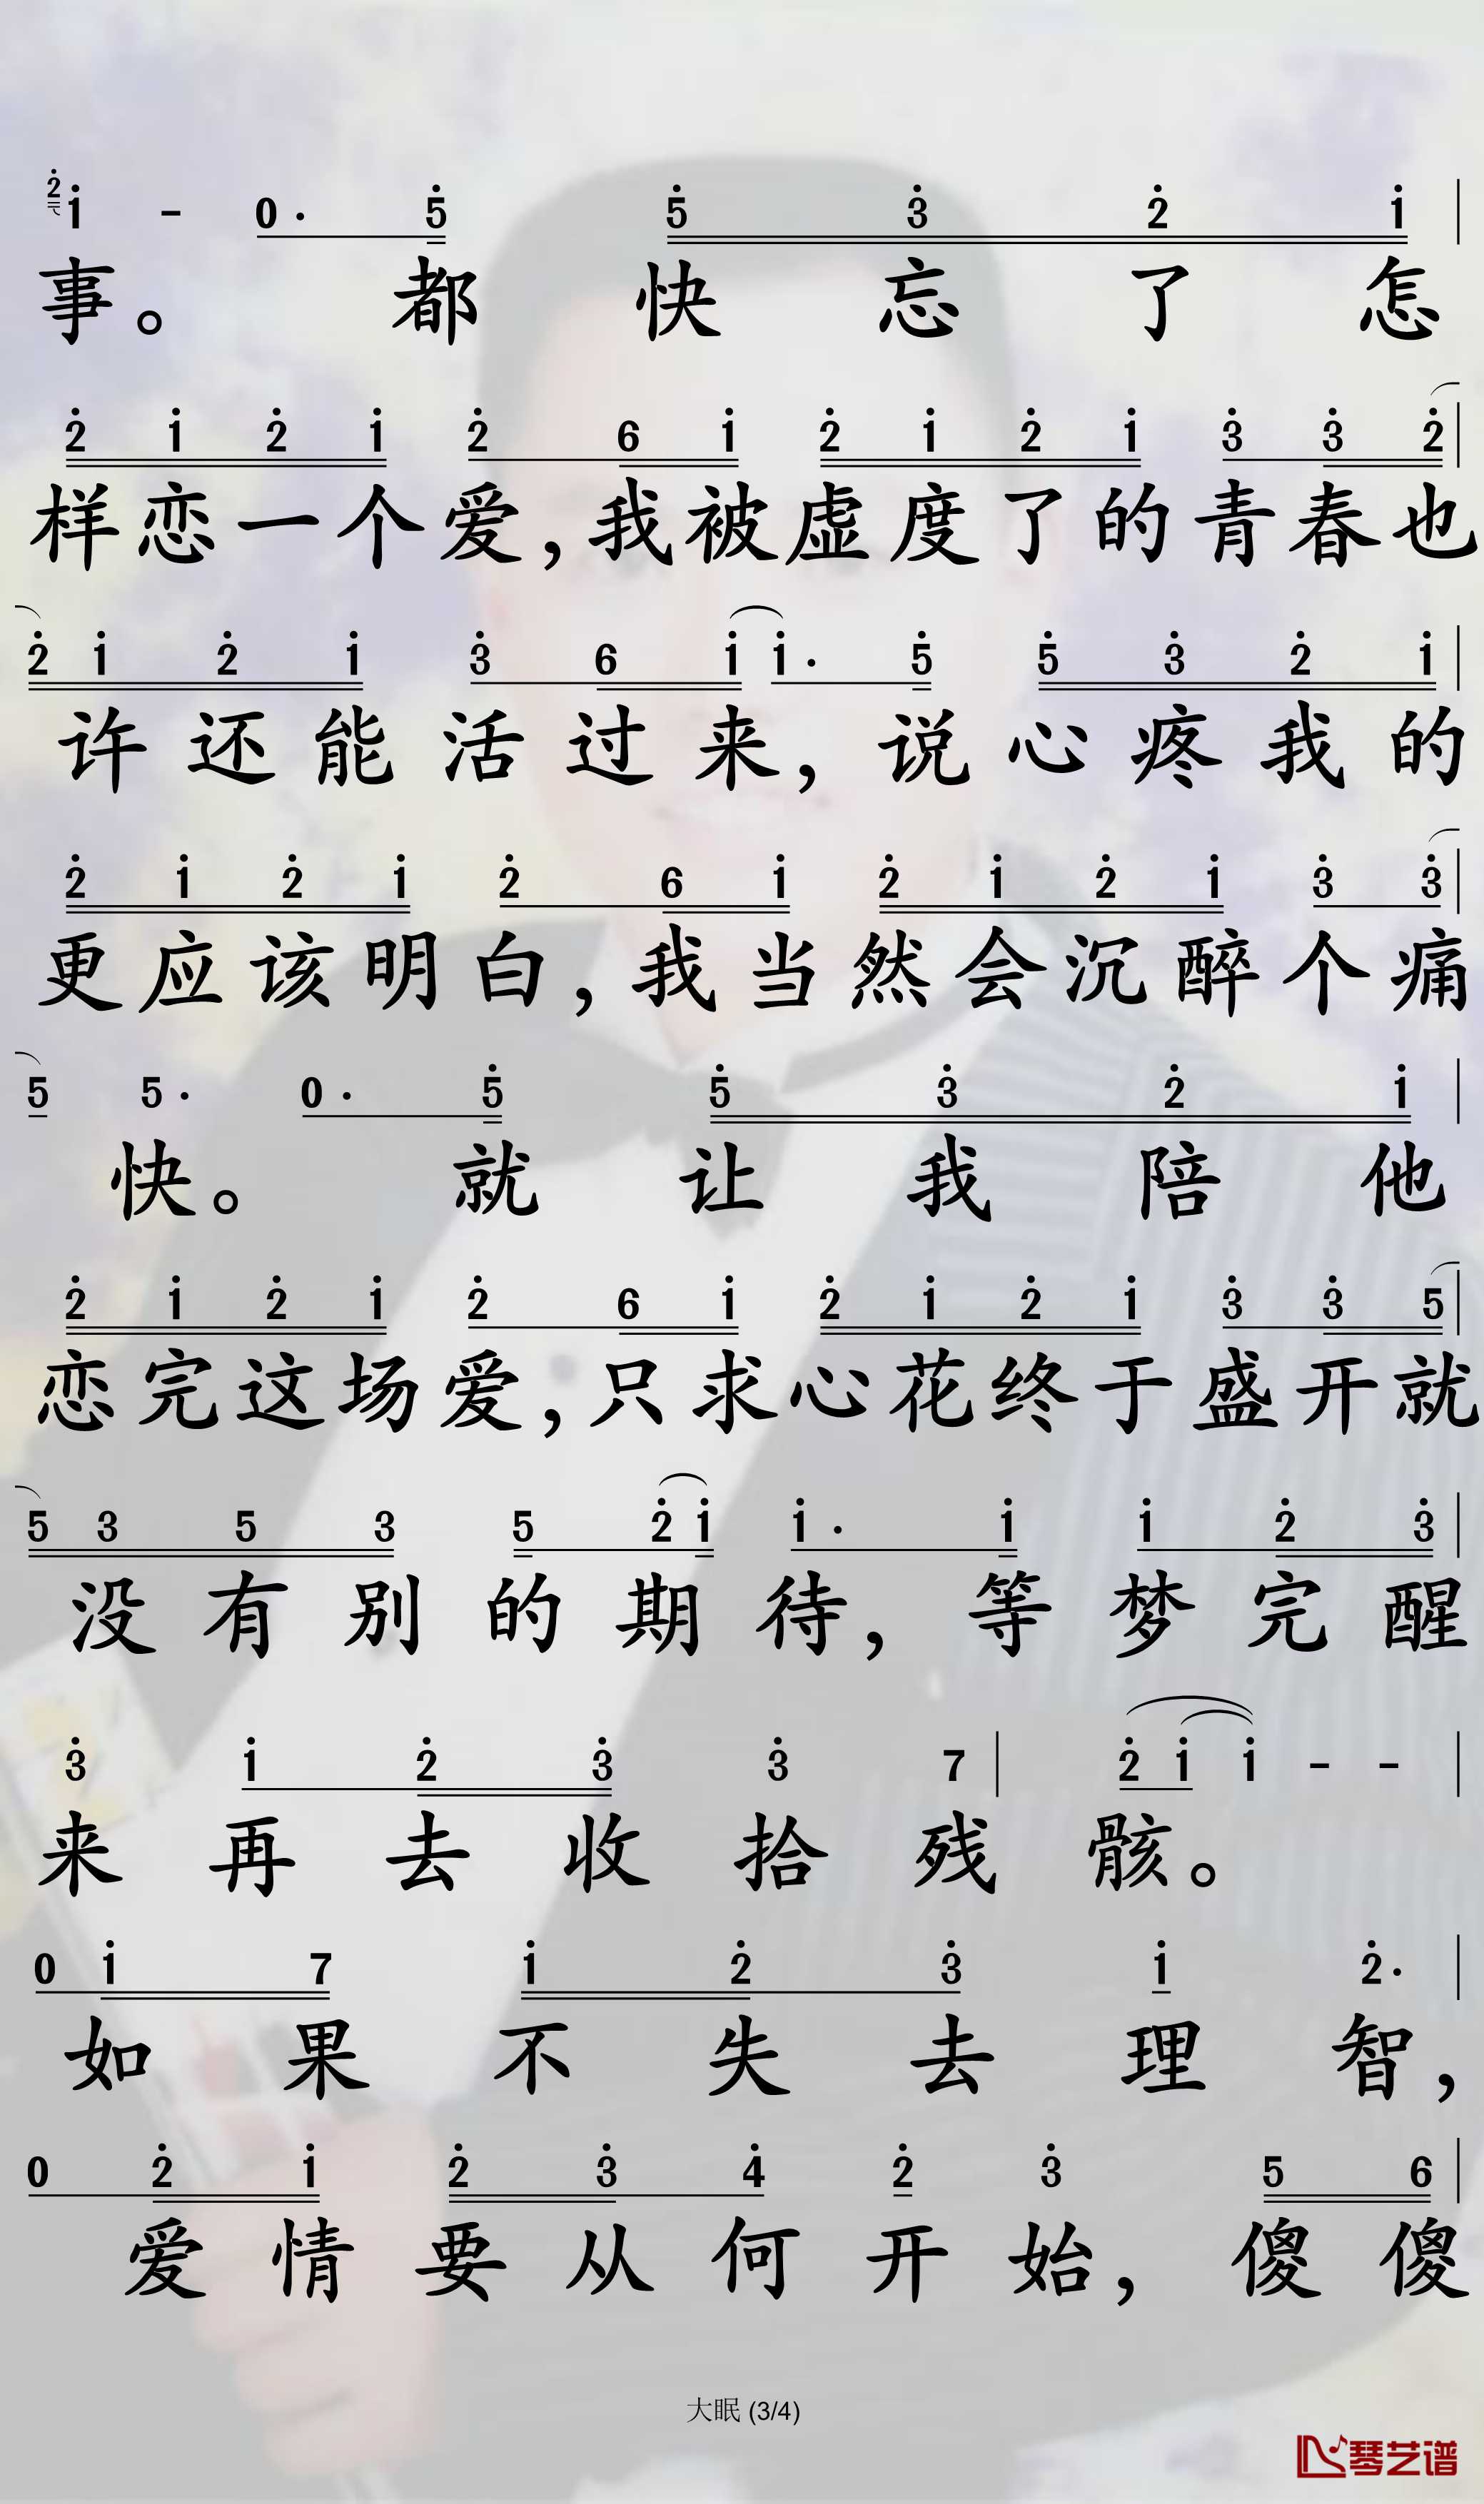 2 1 - 0· 5 5 3 2 1
事。都快忘了怎
2 1 2 1 2 6 1 2 1 2 1 3 3 2
样恋一个爱,我被虚度了的青春也
2 1 2 1 3 6 1 1· 5 5 3 2 1
许还能活过来,说心疼我的
2 1 2 1 2 6 1 2 1 2 1 3 3
更应该明白,我当然会沉醉个痛
5 5· 0· 5 5 3 2 1
快。就让我陪他
2 1 2 1 2 6 1 2 1 2 1 3 3 5
恋完这场爱,只求心花终于盛开就
5 3 5 3 5 2 1 1· 1 1 2 3
没有别的期待,等梦完醒
3 1 2 3 3 7 2 1 1 - -
来再去收拾残骸。
0 1 7 1 2 3 1 2·
如果不失去理智,
0 2 1 2 3 4 2 3 5 6
爱情要从何开始,傻傻
大眠 (3/4)
琴艺谱